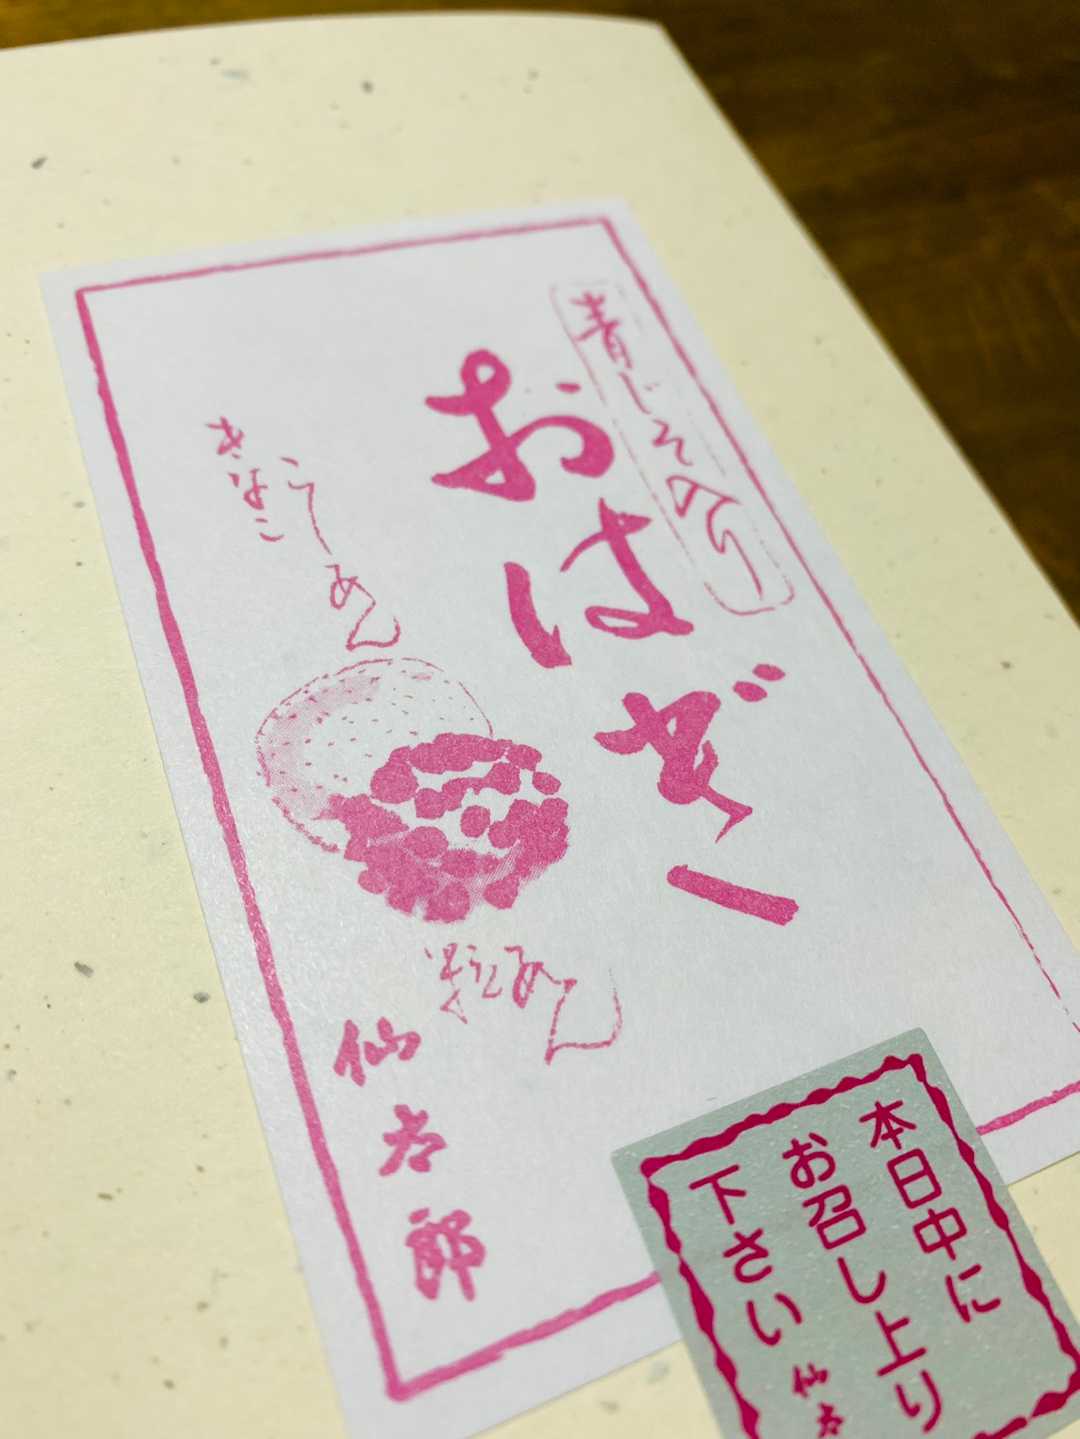 青じそ入り
おはぎ
こしあん
きなこ
粒あん
仙太郎
本日中に
お召し上り
下さい
仙太